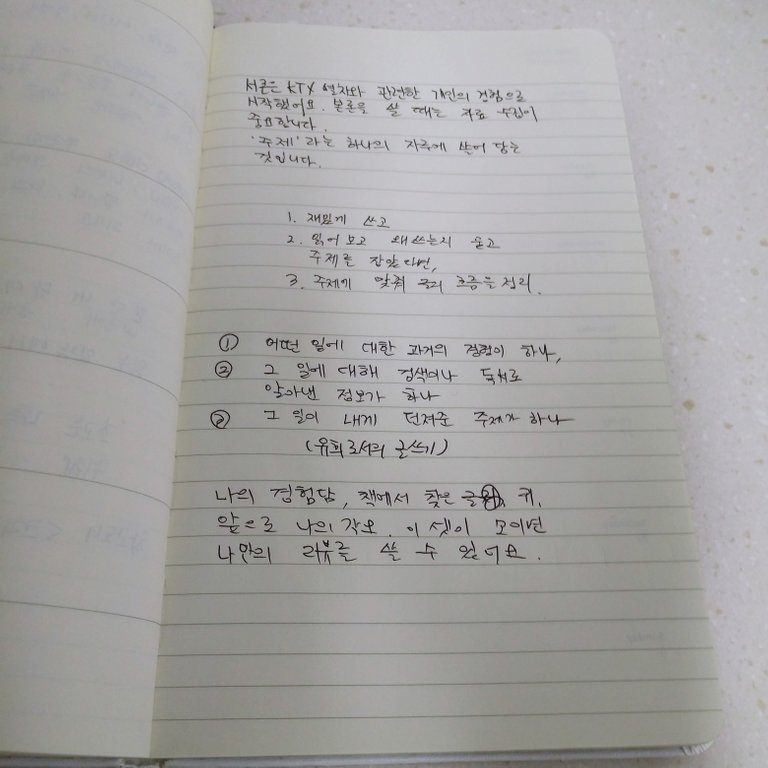 서론은 KTX 열차와 관련한 개인의 경험으로
시작했어요. 본론을 쓸 때는 자료 수집이
중요합니다.
'주제'라는 하나의 자루에 쓸어 담는
것입니다.
1. 재밌게 쓰고
2. 읽어보고 왜 쓰는지 묻고
주제를 잡았다면,
3. 주제에 맞춰 글의 흐름을 정리.
① 어떤 일에 대한 과거의 경험이 하나,
② 그 일에 대해 검색이나 독서로
알아낸 정보가 하나
③ 그 일이 내게 던져준 주제가 하나
(유희로서의 글쓰기)
나의 경험담, 책에서 찾은 글귀,
앞으로 나의 각오. 이 셋이 모이면
나만의 리뷰를 쓸 수 있어요.